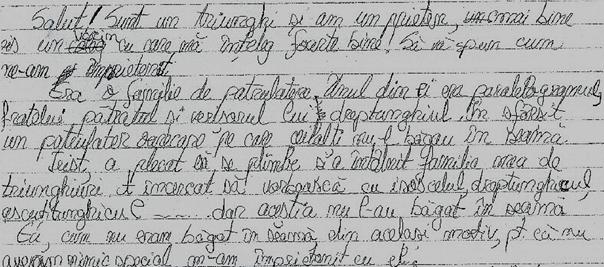 Salut! Sunt un triunghi și am un prieten, mai bine
zis un vecin cu care mă înțeleg foarte bine. Să vă spun cum
ne-am împrietenit
Era o familie de patrulatere. Unul din ei era paralelogramul,
fratele pătratul și verișorul lui dreptunghiul. În sfârșit
un patrulater oarecare pe care ceilalți nu-l băgau în seamă.
Trist, a plecat să se plimbe și a întâlnit familia mea de
triunghiuri. A încercat să vorbească cu isoscelul, dreptunghicul,
ascuțitunghicul ....... dar aceștia nu l-au băgat în seamă
Eu, cum nu eram băgat în seamă din același motiv, pt că nu
aveam nimic special m-am împrietenit cu el.